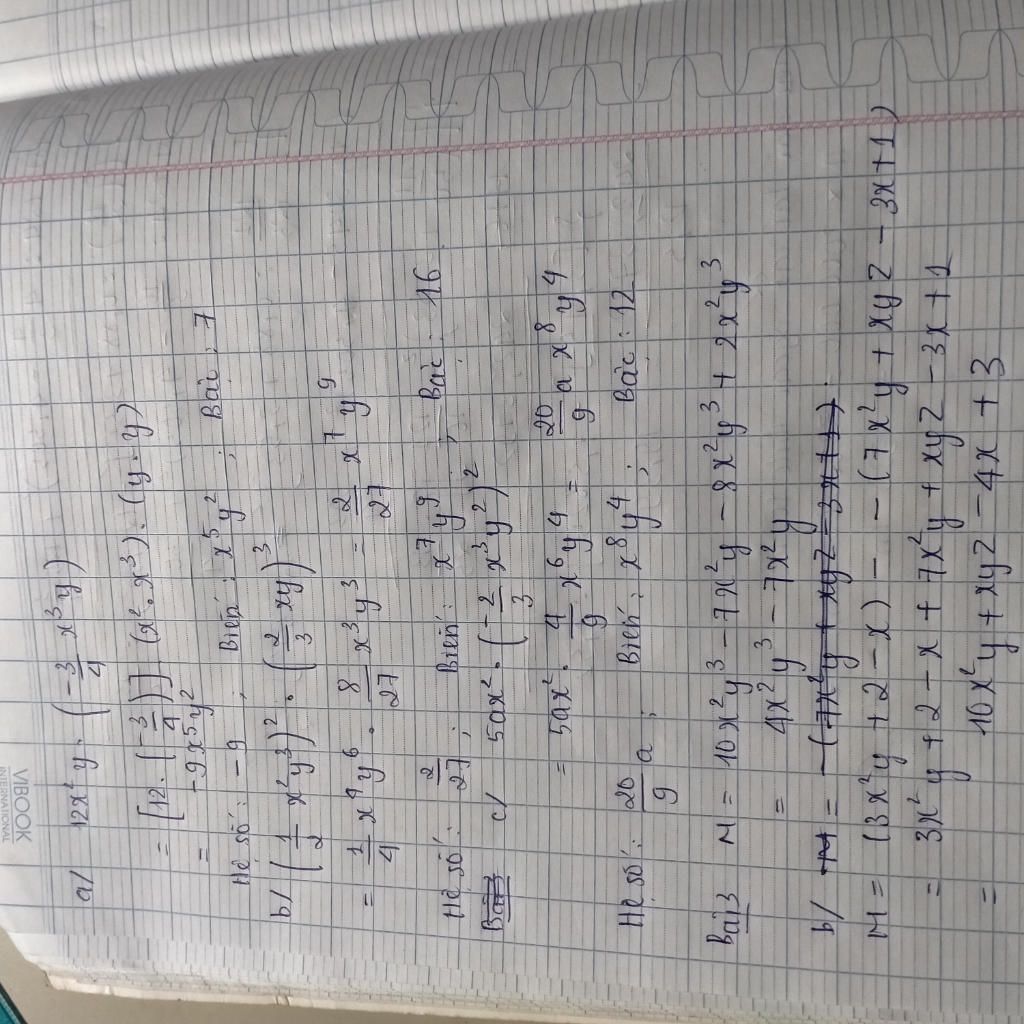 VIBOOK
INTERNATIONAL
a/ 12x²y . (-3/4 x³y)
= [12 . (-3/4)] . (x² . x³) . (y . y)
= -9x⁵y²
Hệ số: -9 ; Biến: x⁵y² ; Bậc: 7
b/ (1/2 x²y³)² . (2/3 xy)³
= 1/4 x⁴y⁶ . 8/27 x³y³ = 2/27 x⁷y⁹
Hệ số: 2/27 ; Biến: x⁷y⁹ ; Bậc: 16
c/ 5ax² . (-2/3 x³y²)²
= 5ax² . 4/9 x⁶y⁴ = 20/9 a x⁸y⁴
Hệ số: 20/9 a ; Biến: x⁸y⁴ ; Bậc: 12
Bài 3 N = 10x²y³ - 7x²y - 8x²y³ + 2x²y³
= 4x²y³ - 7x²y
b/ M = - (7x²y + xyz - 3x + 1).
M = (3x²y + 2 - x) - - (7x²y + xyz - 3x + 1)
= 3x²y + 2 - x + 7x²y + xyz - 3x + 1
= 10x²y + xyz - 4x + 3